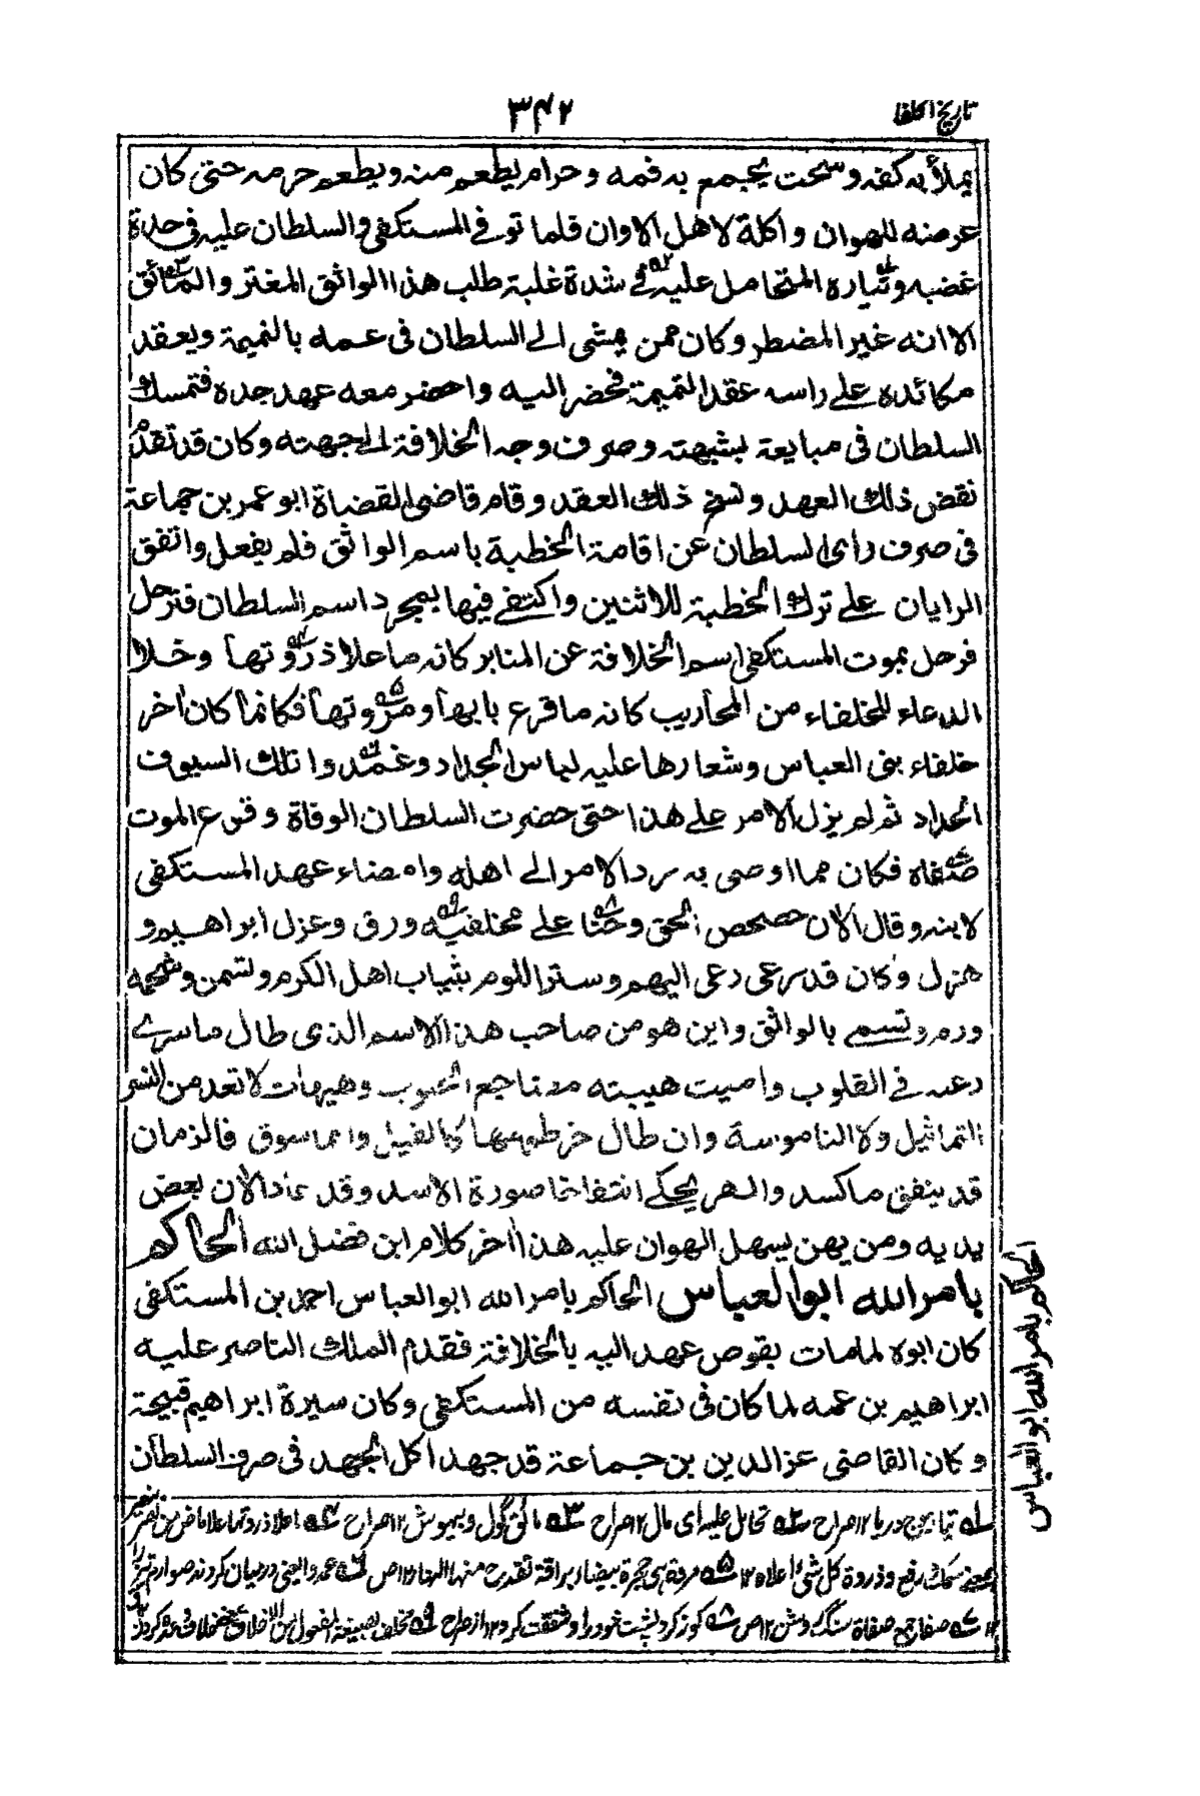 ٣٤٢
تاریخ الخلفا
يملأ به كفه وسحت يجمع به فمه وحرام يطعم منه ويطعم حرمه حتى كان
عرضه للهوان واكلة لاهل الاوان فلما توفي المستكفي والسلطان عليه في حدة
غضبه وتياره المتحامل عليه في شدة غلبته طلب هذا الواثق المغتر والمائق
الا انه غير المضطر وكان ممن يمشى الى السلطان في عمه بالنميمة ويعقد
مكائده على راسه عقد التميمة فحضر اليه واحضر معه عهد جده فتمسك
السلطان في مبايعة بشبهته وصرف وجه الخلافة الى جهته وكان قد تقدم
نقض ذلك العهد ونسخ ذلك العقد وقام قاضى القضاة ابو عمر بن جماعة
فى صرف راى السلطان عن اقامة الخطبة باسم الواثق فلم يفعل واتفق
الرايان على ترك الخطبة للاثنين واكتفى فيها بمجرد اسم السلطان فترحل
فرحل بموت المستكفي اسم الخلافة عن المنابر كانه ما علا ذروتها وخلا
الدعاء للخلفاء من المحاريب كانه ما قرع بابها ومروتها فكانما كان أخر
خلفاء بنى العباس وشعارها عليه لباس الحداد وغمدوا تلك السيوف
الحداد ثم لم يزل الامر على هذا حتى حضرت السلطان الوفاة وقرع الموت
صفاه فكان مما اوصى به رد الامر الى اهله وامضاء عهد المستكفى
لابنه وقال الأن حصحص الحق وحنا على مخلفيه ورق وعزل ابراهيم و
هزل وكان قد رعى دعى اليهم وستر اللوم بثياب اهل الكرم وتسمن وشحمه
ورم وتسمى بالواثق واين هو من صاحب هذا الاسم الذى طال ما سرى
رعبه في القلوب واصيت هيبته مضاجع الجنوب وهيهات لا تعد من النسر
التماثيل ولا الناموسة وان طال خرطومها كالفيل وانما سوق فالزمان
قد ينفق ما كسد والهر يحكى انتفاخا صورة الاسد وقد عاد الأن بعض
يديه ومن يهن يسهل الهوان عليه هذا أخر كلام ابن فضل الله الحاكم
بامر الله ابو العباس الحاكم بامر الله ابو العباس احمد بن المستكفى
كان ابوه لما مات بقوص عهد اليه بالخلافة فقدم الملك الناصر عليه
ابراهيم بن عمه لما كان في نفسه من المستكفي وكان سيرة ابراهيم قبيحة
وكان القاضى عز الدين بن جماعة قد جهد اكل الجهد في صرف السلطان
الحاكم بامر الله ابو العباس
تحامل عليه اى مال ١٢ صراح مائق گول وبيهوش ١٢ صراح
سمك رفع وذروة كل شئ اعلاه ١٢ مروة هى حجرة بيضاء براقة تقدح منها النار ١٢ ص